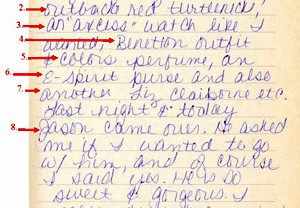 2. outbacks red turtlenick,
3. an "axcess" watch like I
4. wanted, Benetton outfit
5. & colors perfume, an
6. E-Spirit purse and also
7. another Liz Claiborne etc.
Last night & today
8. Jason came over. He asked
me if I wanted to go
w/ him, and of course
I said yes. He is so
sweet & gorgeous. I